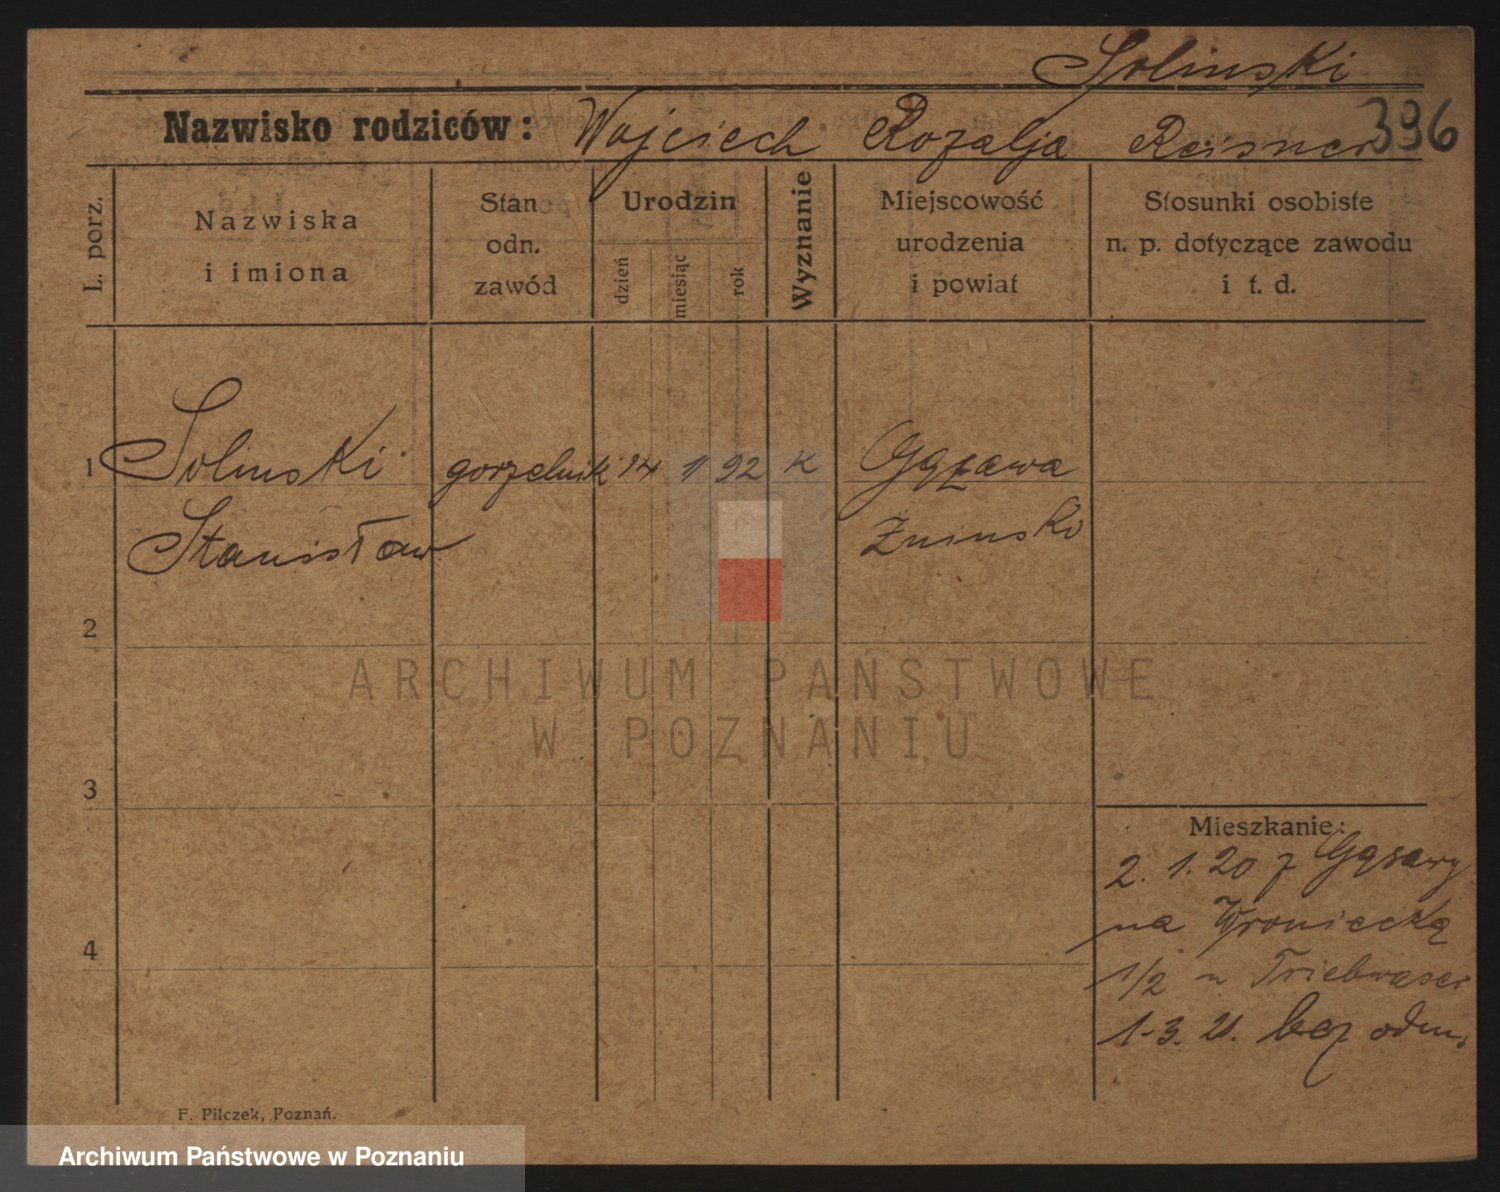 Solinski
Nazwisko rodziców: Wojciech Rozalja Reisner 396
L. porz.
Nazwiska
i imiona
Stan
odn.
zawód
Urodzin
dzień
miesiąc
rok
Wyznanie
Miejscowość
urodzenia
i powiat
Stosunki osobiste
n. p. dotyczące zawodu
i t. d.
1 Solinski gorzelnik 14 1 92 K Gąsawa
Stanisław Żninsko
2
3
4
Mieszkanie:
2. 1. 20 z Gąsawy
na Wroniecką
1/2 u
1-3. 21. bez odm.
F. Pilczek, Poznań.
ARCHIWUM PAŃSTWOWE
W POZNANIU
Archiwum Państwowe w Poznaniu